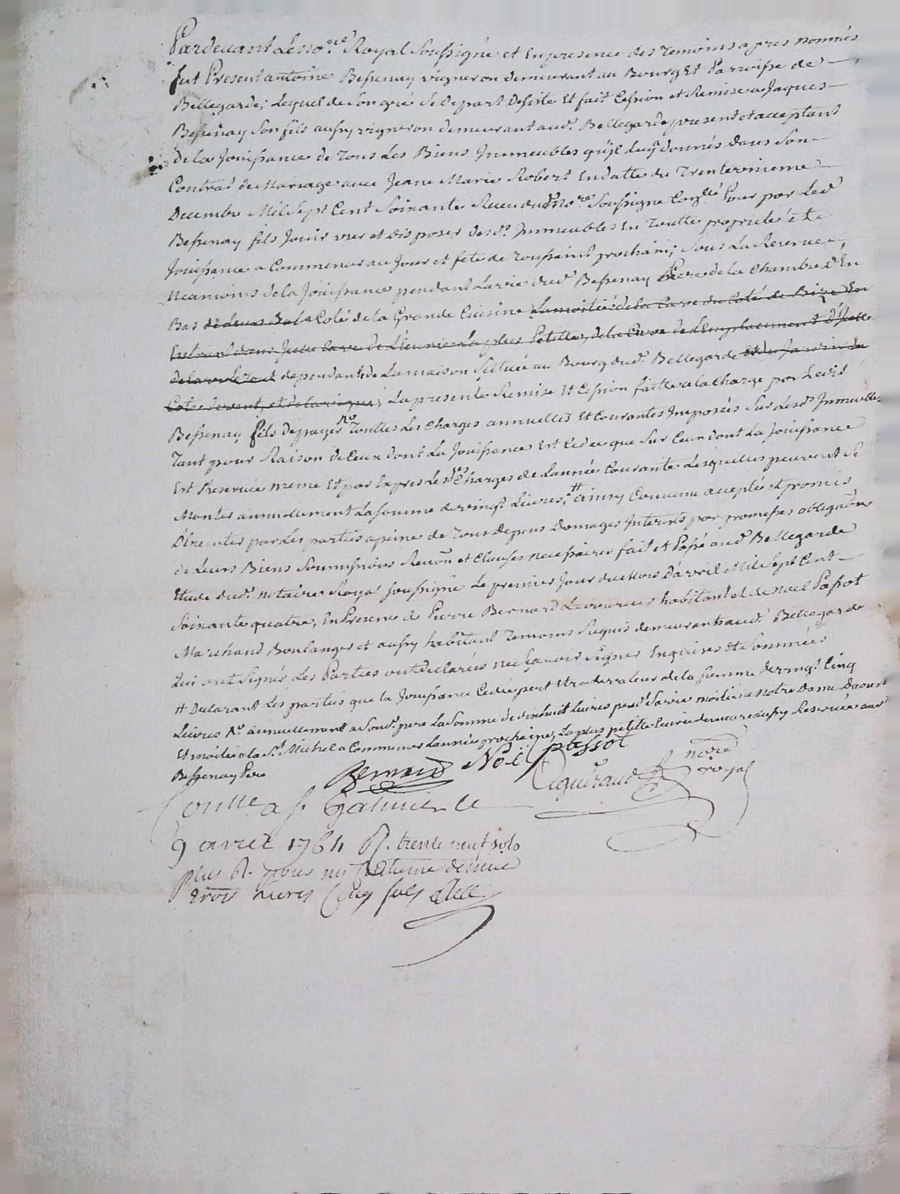 Pardevant Le no.re Royal Soussigné et En presence des Temoins apres nommés
fut Present antoine Bessenay vigneron demeurant au Bourg Et Parroisse de
Bellegarde; Lequel de Son gré Se Depart Desiste Et fait Cession et Remise a Jaques
Bessenay Son fils aussy vigneron demeurant aud. Bellegarde present et acceptant
de la Jouissance de Tous Les Biens Immeubles qu'jl luy donnés dans Son
Contrat de Mariage avec Jeane Marie Robert En datte du Trenteunieme
Decembre Mil Sept Cent Soixante Receu du no.re Soussigné Pour par Led.
Bessenay fils Jouir user et Disposer desd. Immeubles En Toutte proprieté Et
Jouissance a Commencer au Jour et fete de Toussaint prochain; Sous La Reserve
Neanmoins de la Jouissance pendant La vie dud. Bessenay Pere de la Chambre d'En
Bas a Coté de la Grande Cuisine La moitié de la Cave du Coté de Bize
dependant de La maison Scituée au Bourg dud. Bellegarde
La presente Remise Et Cession faitte a la Charge par Led.
Bessenay fils de payer Touttes Les Charges annuelles Et Courantes Imposées Sur Lesd. Immeubles
Tant pour Raison de Ceux dont La Jouissance Est Cedée que Sur Ceux dont La Jouissance
Est Reservée meme Et par Exprès Les Charges de Lannée Courante Lesquelles peuvent Se
Monter annuellement La Somme de vingt Livres ainsy Convenu accepté Et promis
Executer par Les parties a peine de Tous Depens Domages Interets par promesses obligaõn
de Leurs Biens Soumissions Renoñ et Clauses necessaires fait Et Passé aud. Bellegarde
Etude dud. notaire Royal Soussigné Le premier Jour du Mois D'avril Mil Sept Cent
Soixante quatre, En Presence de Pierre Bernard habitant et de noel Passot
Marchand Boulanger et aussy habitant Temoins Requis demeurant aud. Bellegarde
Qui ont Signés Les Parties ont declarés ne Sçavoir Signer Enquises Et Sommées
# Declarant Les parties que la Jouissance Cedée peut Etre de valeur de la Somme de vingt Cinq
Livres annuellement a Sond. pere La Somme de dixhuit Livres moitié a Notre Dame Daoust
Et moitié a la St. Michel a Commencer Lannée prochaine, La plus petite Cuve demeure aussy Reservée aud.
Bessenay Pere
Bernard Noël passot
noïre royal
9 avril 1764 R. trente neuf sols
trois Livres Cinq sols